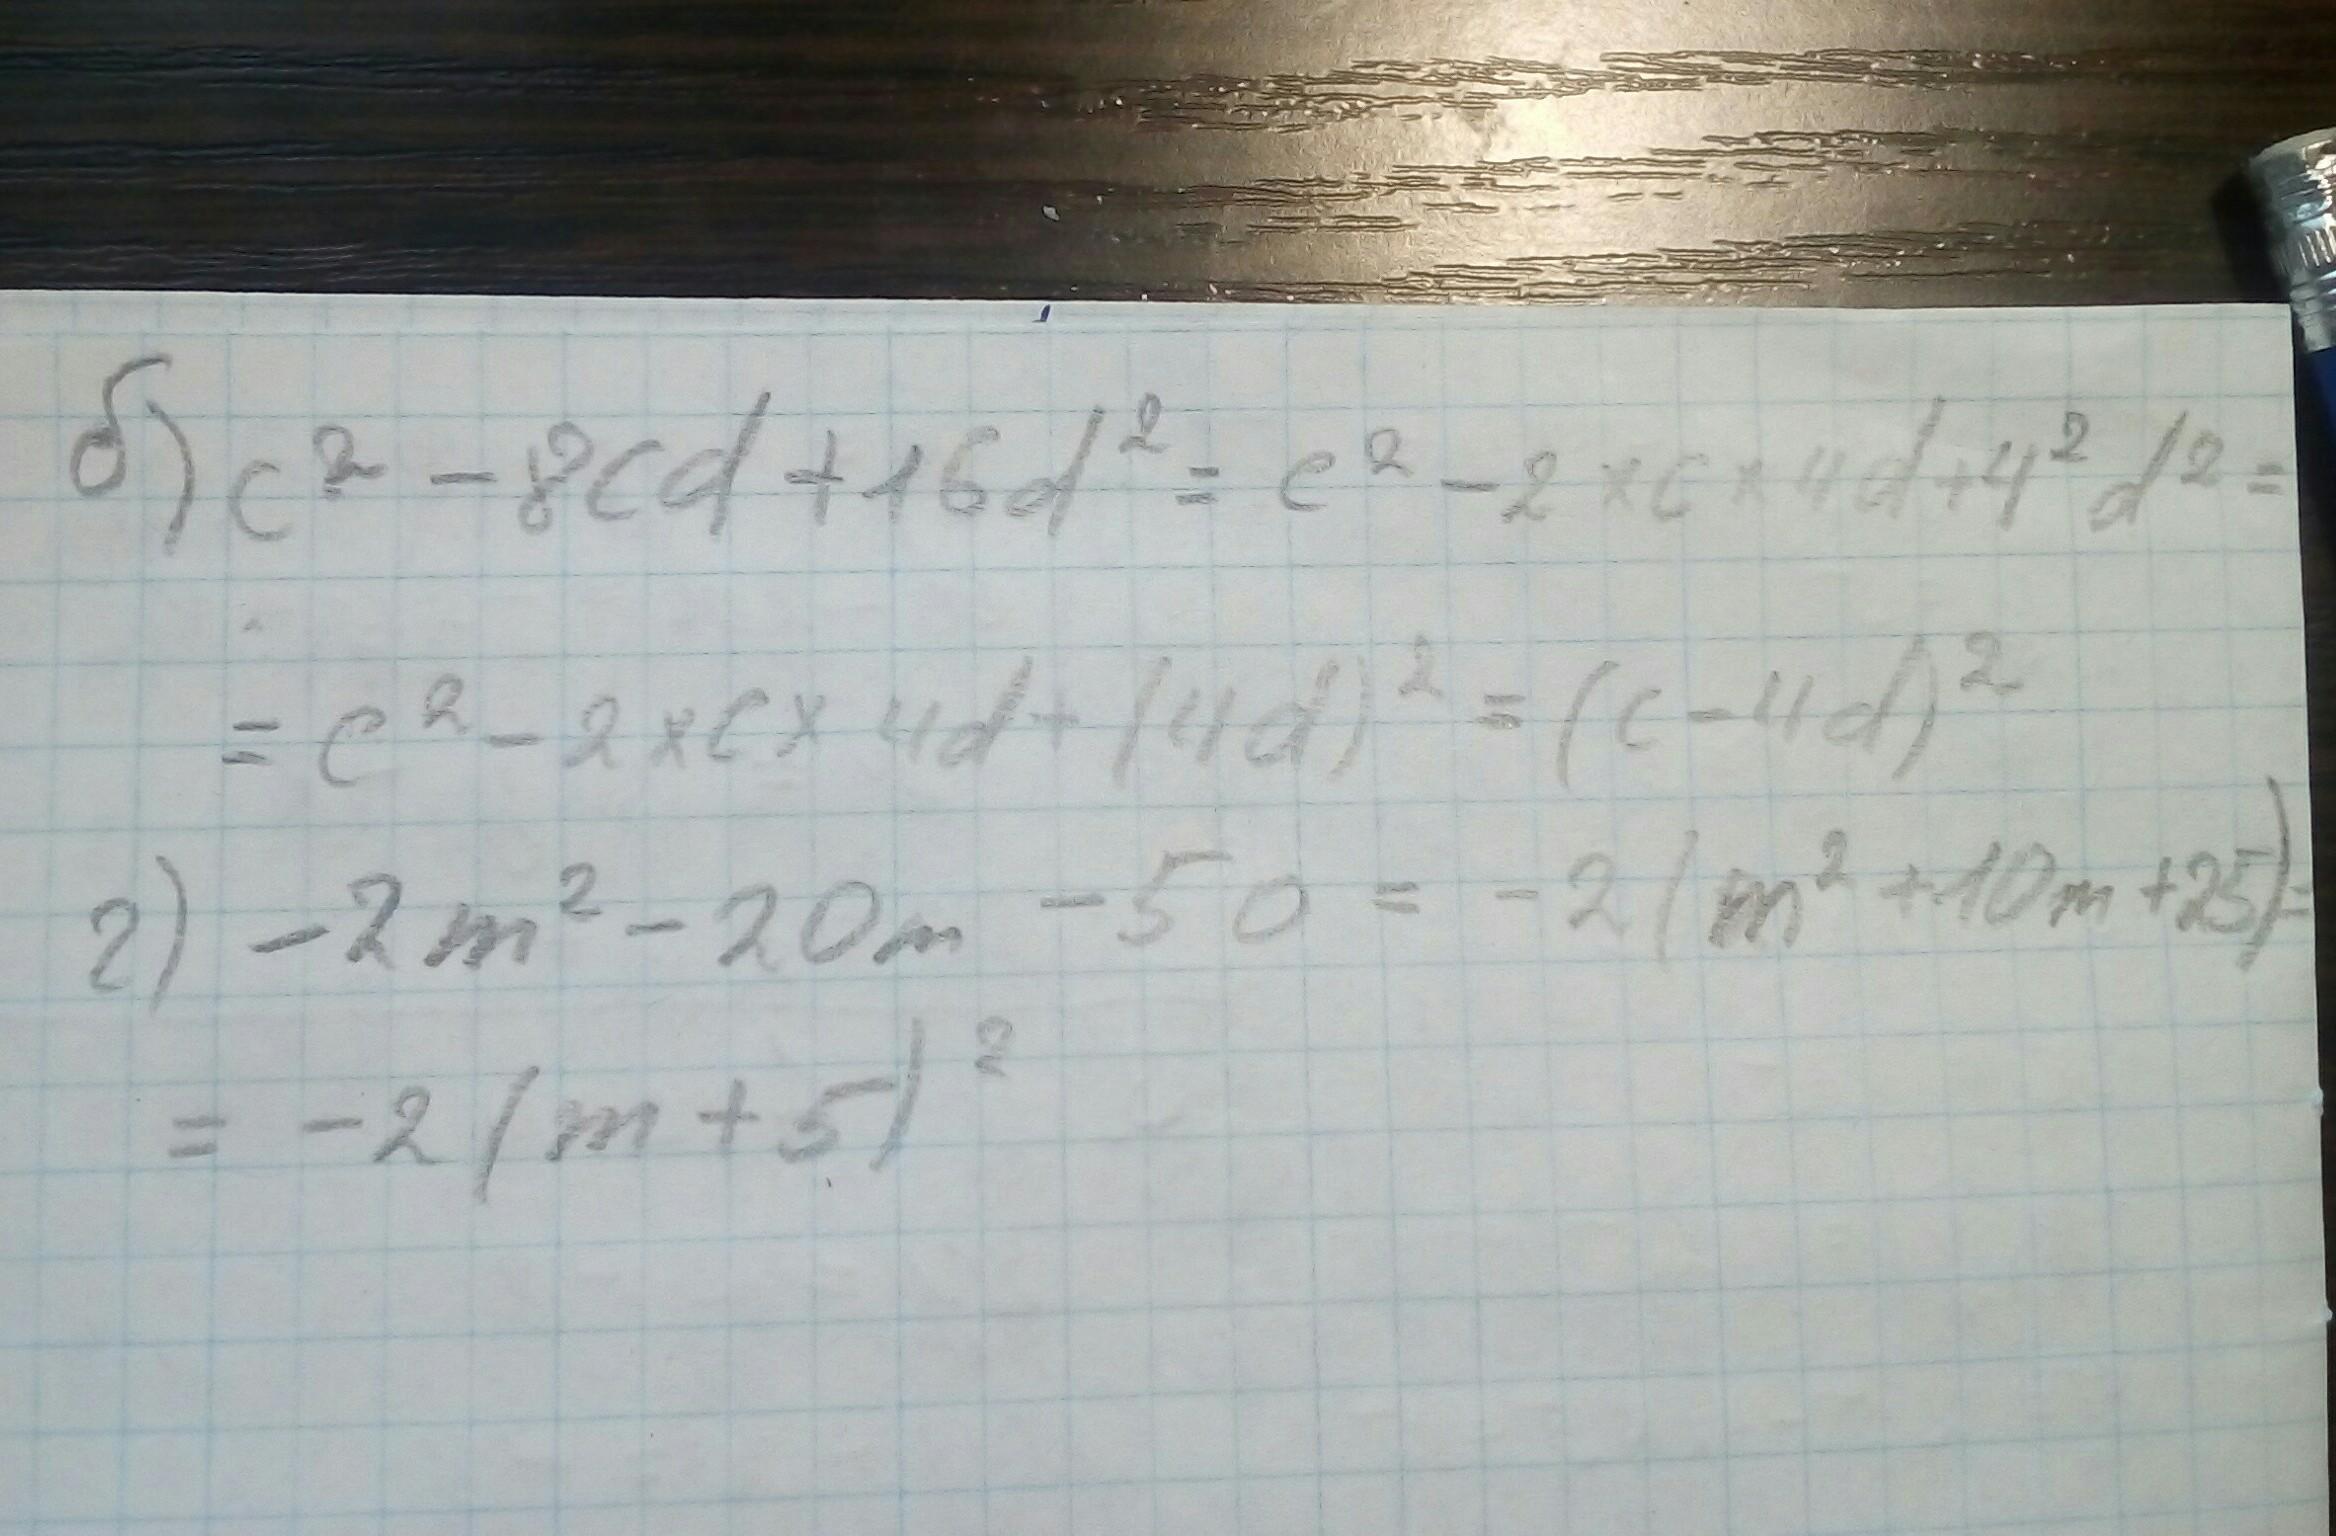 б) c² - 8cd + 16d² = c² - 2 × c × 4d + 4² d² =
= c² - 2 × c × 4d + (4d)² = (c - 4d)²
г) - 2m² - 20m - 50 = - 2(m² + 10m + 25) =
= - 2(m + 5)²